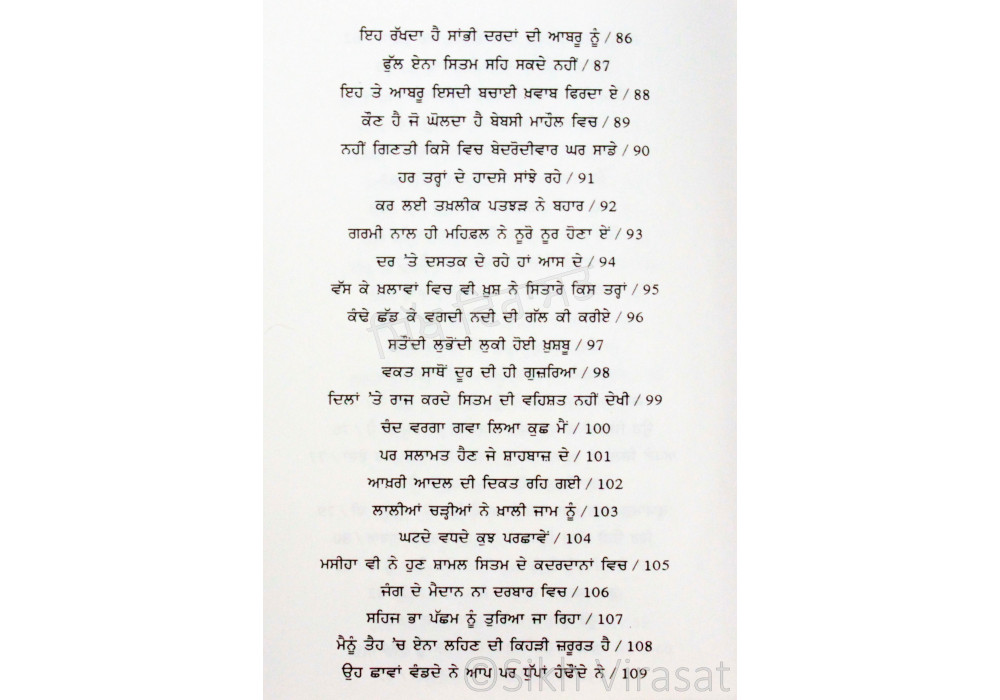 ਇਹ ਰੱਖਦਾ ਹੈ ਸਾਂਭੀ ਦਰਦਾਂ ਦੀ ਆਬਰੂ ਨੂੰ / 86
ਫੁੱਲ ਏਨਾ ਸਿਤਮ ਸਹਿ ਸਕਦੇ ਨਹੀਂ / 87
ਇਹ ਤੇ ਆਬਰੂ ਇਸਦੀ ਬਚਾਈ ਖ਼ਵਾਬ ਫਿਰਦਾ ਏ / 88
ਕੌਣ ਹੈ ਜੋ ਘੋਲਦਾ ਹੈ ਬੇਬਸੀ ਮਾਹੌਲ ਵਿਚ / 89
ਨਹੀਂ ਗਿਣਤੀ ਕਿਸੇ ਵਿਚ ਬੇਦਰੋਦੀਵਾਰ ਘਰ ਸਾਡੇ / 90
ਹਰ ਤਰ੍ਹਾਂ ਦੇ ਹਾਦਸੇ ਸਾਂਝੇ ਰਹੇ / 91
ਕਰ ਲਈ ਤਖ਼ਲੀਕ ਪਤਝੜ ਨੇ ਬਹਾਰ / 92
ਗਰਮੀ ਨਾਲ ਹੀ ਮਹਿਫ਼ਲ ਨੇ ਨੂਰੋ ਨੂਰ ਹੋਣਾ ਏਂ / 93
ਦਰ 'ਤੇ ਦਸਤਕ ਦੇ ਰਹੇ ਹਾਂ ਆਸ ਦੇ / 94
ਵੱਸ ਕੇ ਖ਼ਲਾਵਾਂ ਵਿਚ ਵੀ ਖ਼ੁਸ਼ ਨੇ ਸਿਤਾਰੇ ਕਿਸ ਤਰ੍ਹਾਂ / 95
ਕੰਢੇ ਛੱਡ ਕੇ ਵਗਦੀ ਨਦੀ ਦੀ ਗੱਲ ਕੀ ਕਰੀਏ / 96
ਸਤੌਂਦੀ ਲੁਭੌਂਦੀ ਲੁਕੀ ਹੋਈ ਖ਼ੁਸ਼ਬੂ / 97
ਵਕਤ ਸਾਥੋਂ ਦੂਰ ਦੀ ਹੀ ਗੁਜ਼ਰਿਆ / 98
ਦਿਲਾਂ 'ਤੇ ਰਾਜ ਕਰਦੇ ਸਿਤਮ ਦੀ ਵਹਿਸ਼ਤ ਨਹੀਂ ਦੇਖੀ / 99
ਚੰਦ ਵਰਗਾ ਗਵਾ ਲਿਆ ਕੁਛ ਮੈਂ / 100
ਪਰ ਸਲਾਮਤ ਹੈਣ ਜੇ ਸ਼ਾਹਬਾਜ਼ ਦੇ / 101
ਆਖ਼ਰੀ ਆਦਲ ਦੀ ਦਿਕਤ ਰਹਿ ਗਈ / 102
ਲਾਲੀਆਂ ਚੜ੍ਹੀਆਂ ਨੇ ਖ਼ਾਲੀ ਜਾਮ ਨੂੰ / 103
ਘਟਦੇ ਵਧਦੇ ਕੁਝ ਪਰਛਾਵੇਂ / 104
ਮਸੀਹਾ ਵੀ ਨੇ ਹੁਣ ਸ਼ਾਮਲ ਸਿਤਮ ਦੇ ਕਦਰਦਾਨਾਂ ਵਿਚ / 105
ਜੰਗ ਦੇ ਮੈਦਾਨ ਨਾ ਦਰਬਾਰ ਵਿਚ / 106
ਸਹਿਜ ਭਾ ਪੱਛਮ ਨੂੰ ਤੁਰਿਆ ਜਾ ਰਿਹਾ / 107
ਮੈਨੂੰ ਤੈਹ 'ਚ ਏਨਾ ਲਹਿਣ ਦੀ ਕਿਹੜੀ ਜ਼ਰੂਰਤ ਹੈ / 108
ਉਹ ਛਾਵਾਂ ਵੰਡਦੇ ਨੇ ਆਪ ਪਰ ਧੁੱਪਾਂ ਹੰਢੌਂਦੇ ਨੇ / 109
ਸਿੱਖ ਵਿਰਾਸਤ
©Sikh Virasat